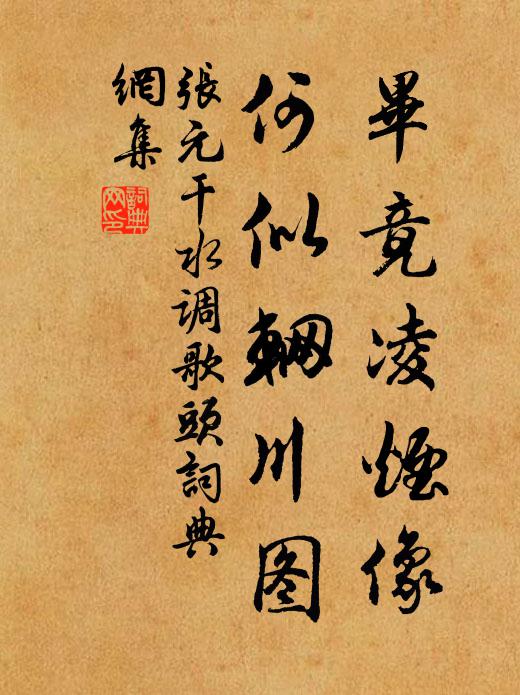 畢竟凌煙像
何似輞川图
張元干水调歌頭詞典
網集
詞典
网印